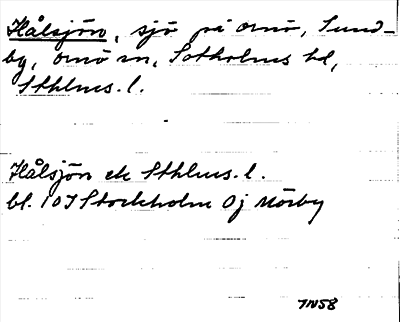 Hålsjön, sjö på Ornö, Sund-
by, Ornö sn, Sotholms hd,
Sthlms. l.
Hålsjön ek Sthlms. l.
bl. 10I Stockholm Oj Mörby
7N58